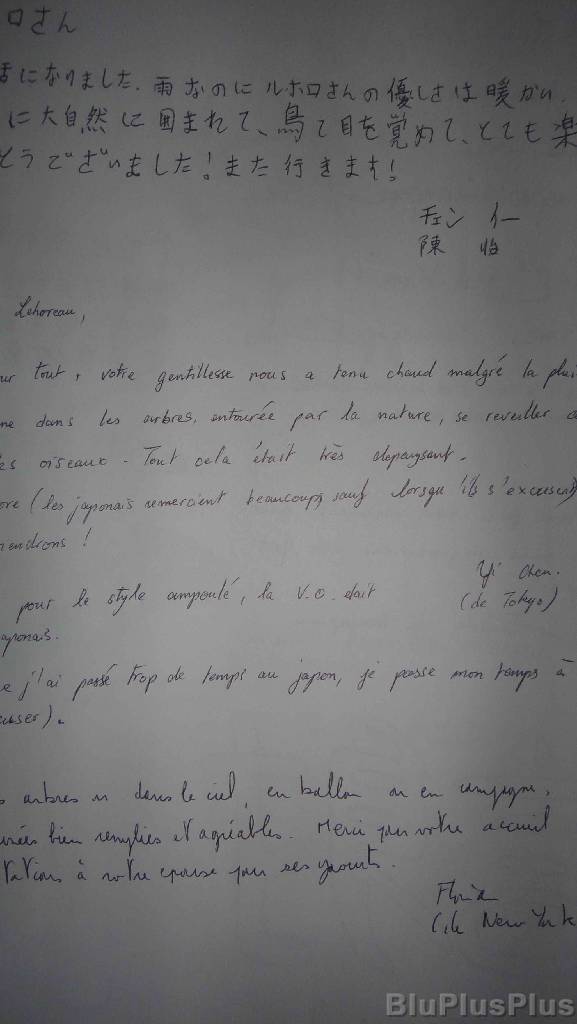 ロさん
話になりました。雨なのにルホロさんの優しさは暖かい。
に大自然に囲まれて、鳥で目を覚めて、とても楽
そうでございました!また行きます!
チェン イー
陳 怡
Lehoreau,
ur tout, votre gentillesse nous a tenu chaud malgré la plui
me dans les arbres, entourée par la nature, se reveiller a
es oiseaux. Tout cela était très depaysant.
ore (les japonais remercient beaucoup, sauf lorsqu'ils s'excusent)
iendrons !
Yi Chen.
pour le style ampoulé, la V.O. était
(de Tokyo)
aponais.
e j'ai passé trop de temps au japon, je passe mon temps à
cuser).
s arbres dans le ciel, en ballon ou en campagne,
nées bien remplies et agréables. Merci pour votre accueil
tations à votre epouse pour ses yaourts.
New York
BluPlusPlus